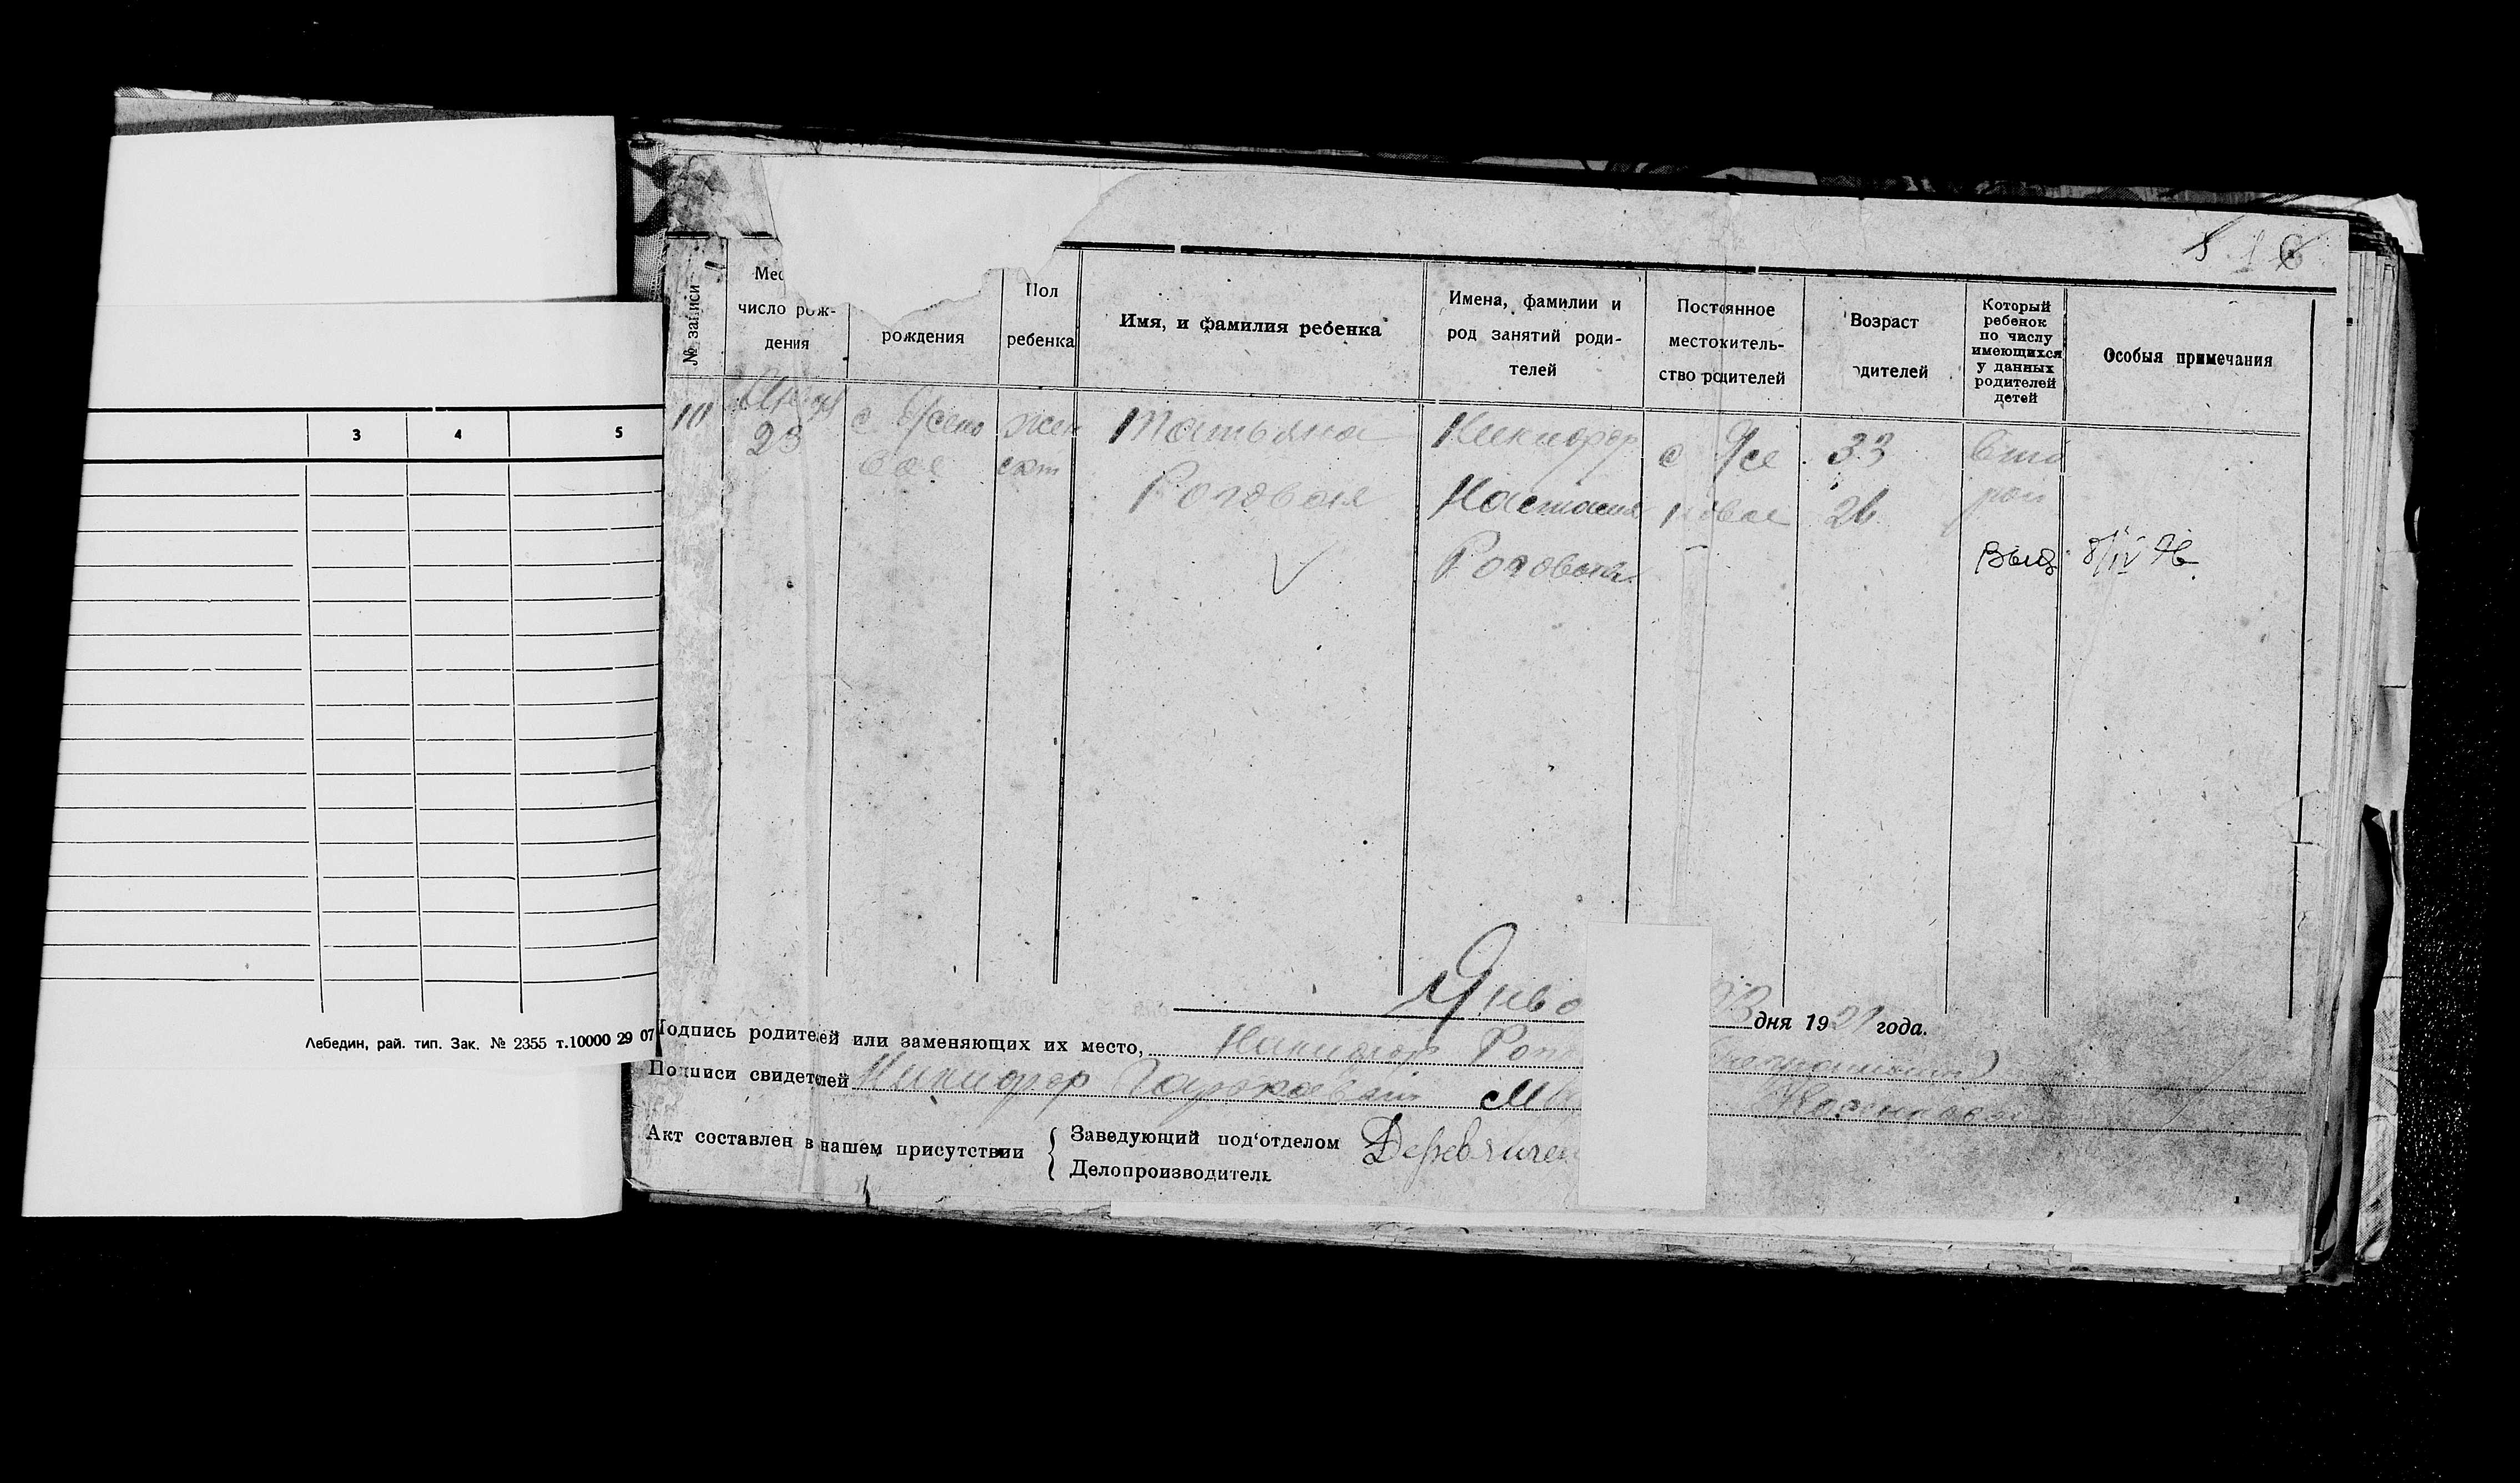 3 4 5
Лебедин, рай. тип. Зак. № 2355 т.10000 29 07
№ записи
Мес
число рож-
дения
рождения
Пол
ребенка
Имя, и фамилия ребенка
Имена, фамилии и
род занятий роди-
телей
Постоянное
местожитель-
ство родителей
Возраст
одителей
Который
ребенок
по числу
имеющихся
у данных
родителей
детей
Особыя примечания
10
23
с Ясено
вое
жен
ск
Татьяна
Роговая
Никифор
Настасия
Роговыя
с Ясе
новое
33
26
Вто
рой
8/IV 76
Янва
дня 1921 года.
Подпись родителей или заменяющих их место, Никифор Рог
Подписи свидетелей Никифор
Акт составлен в нашем присутствии
Заведующий под'отделом Деревянчен
Делопроизводитель